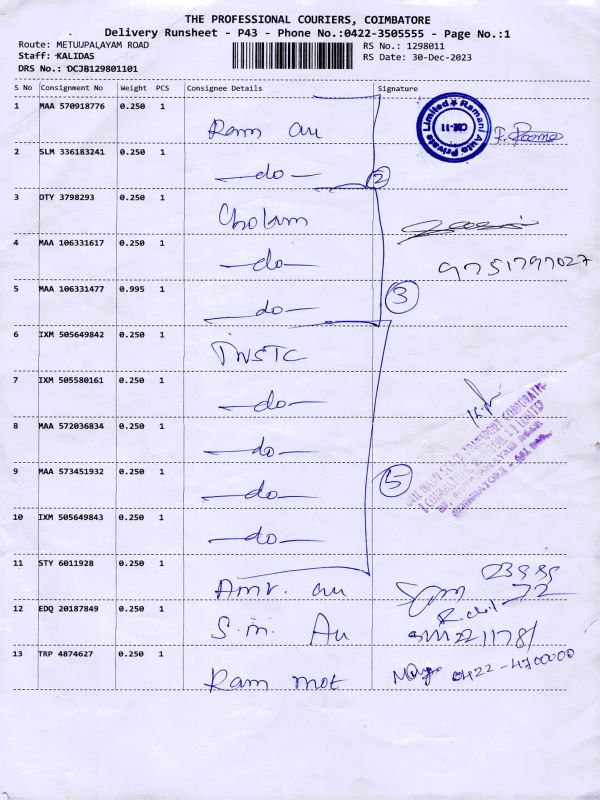 THE PROFESSIONAL COURIERS, COIMBATORE
Delivery Runsheet - P43 - Phone No.:0422-3505555 - Page No.:1
Route: METUUPALAYAM ROAD
Staff: KALIDAS
DRS No.: DCJB129801101
RS No.: 1298011
RS Date: 30-Dec-2023
S No Consignment No Weight PCS Consignee Details Signature
1 MAA 570918776 0.250 1 Ram au
Ramani Auto Private Limited
2 SLM 336183241 0.250 1 -do- 2
3 DTY 3798293 0.250 1 Cholam
4 MAA 106331617 0.250 1 -do- 9751797027
5 MAA 106331477 0.995 1 -do- 3
6 IXM 505649842 0.250 1 TNSTC
7 IXM 505580161 0.250 1 -do-
8 MAA 572036834 0.250 1 -do-
9 MAA 573451932 0.250 1 -do- 5
10 IXM 505649843 0.250 1 -do-
11 STY 6011928 0.250 1 Amr. au
12 EDQ 20187849 0.250 1 S.m. Au
13 TRP 4874627 0.250 1 Ram mot 0422-4700000